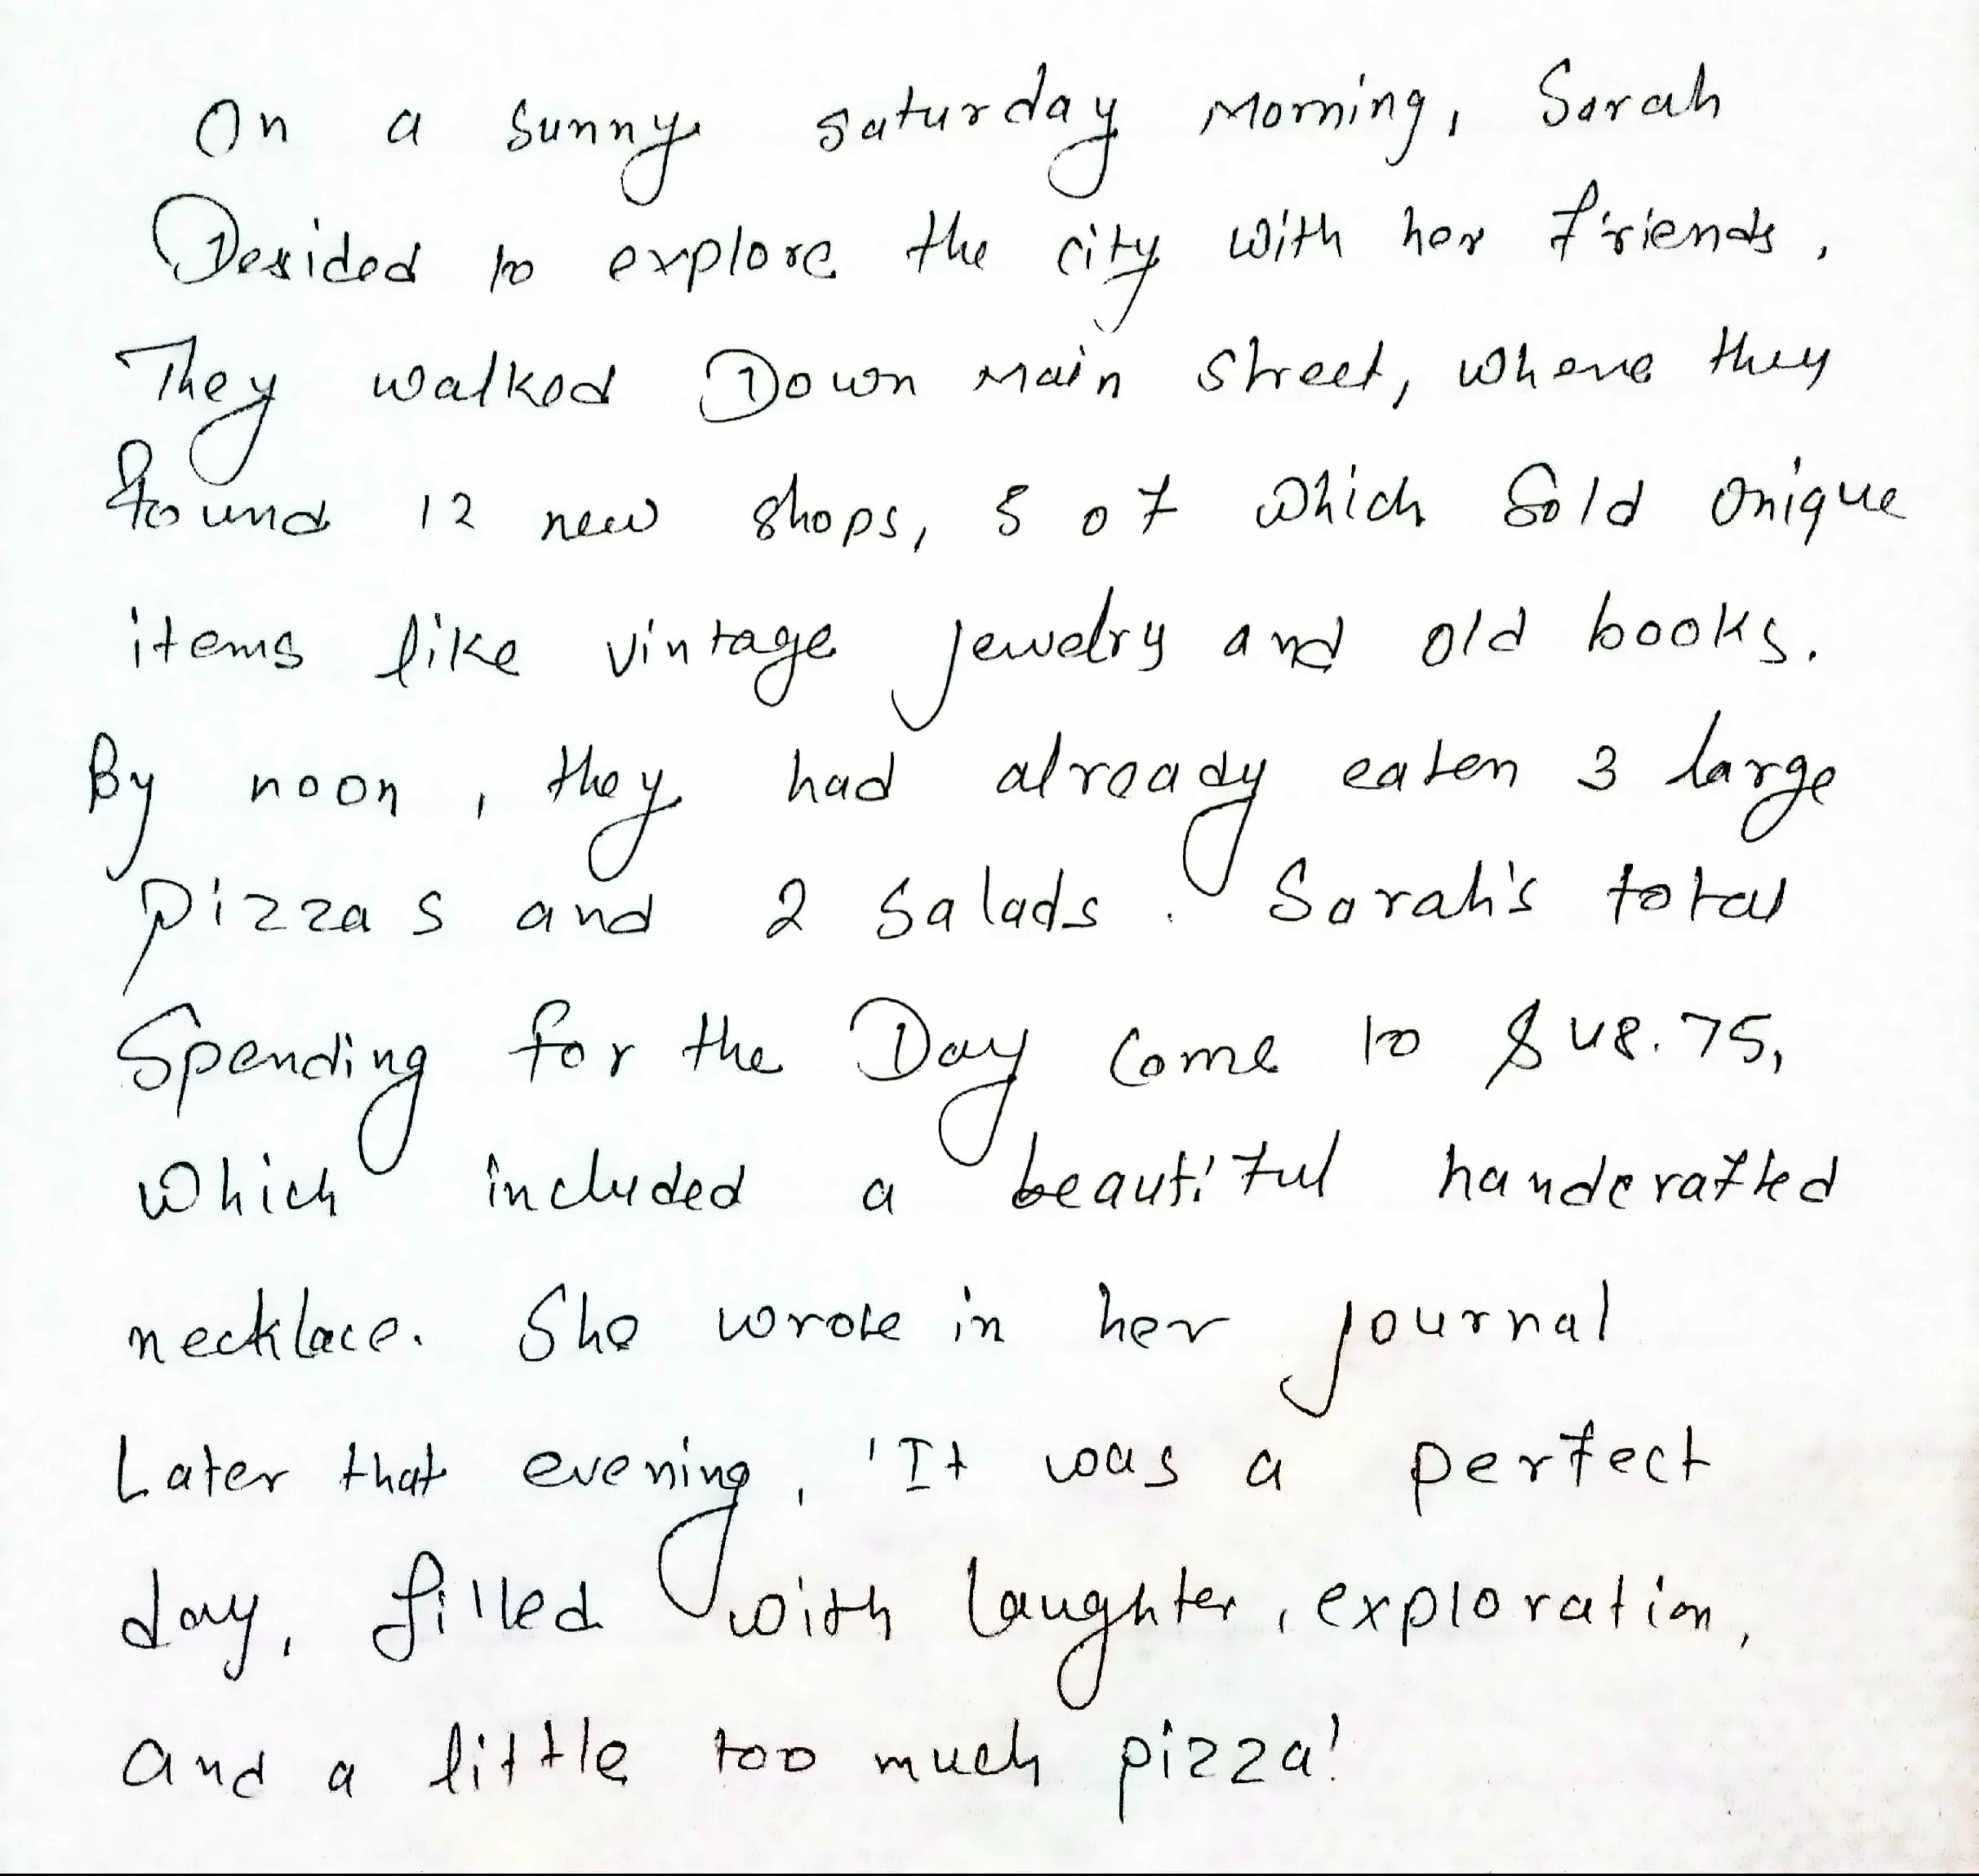 On a sunny saturday morning, Sarah
Desided to explore the city with her friends.
They walked Down main street, where they
found 12 new shops, 5 of which sold unique
items like vintage jewelry and old books.
By noon, they had already eaten 3 large
pizzas and 2 salads. Sarah's total
Spending for the Day come to $48.75,
which included a beautiful handcrafted
necklace. She wrote in her journal
Later that evening, 'It was a perfect
day, filled with laughter, exploration,
and a little too much pizza!